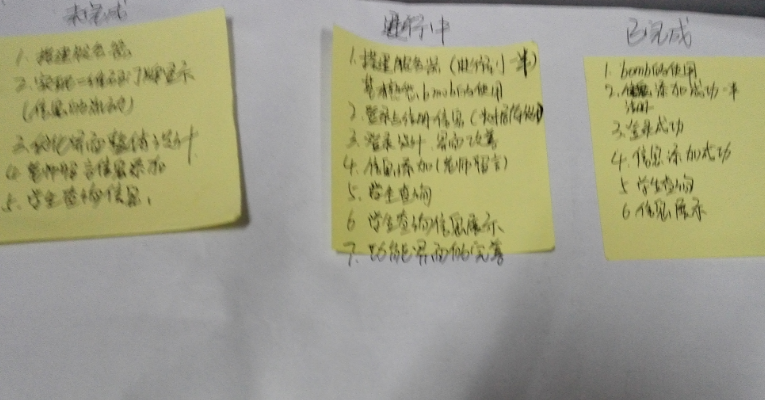 未完成
1. 搭建服务器
2. 实现一维码门牌显示
(信息的
3. 优化界面整体设计
4. 老师留言信息添加
5. 学生查询信息
进行中
1. 搭建服务器 (进行到一半)
基本熟悉bmob的使用
2. 登录与注册信息
3. 登录设计 界面改善
4. 信息添加(老师留言)
5. 学生查询
6 学生查询信息展示
7. 功能界面的完善
已完成
1. bomb的使用
2. 信息添加成功一半
3. 登录成功
4. 信息添加成功
5 学生查询
6 信息展示